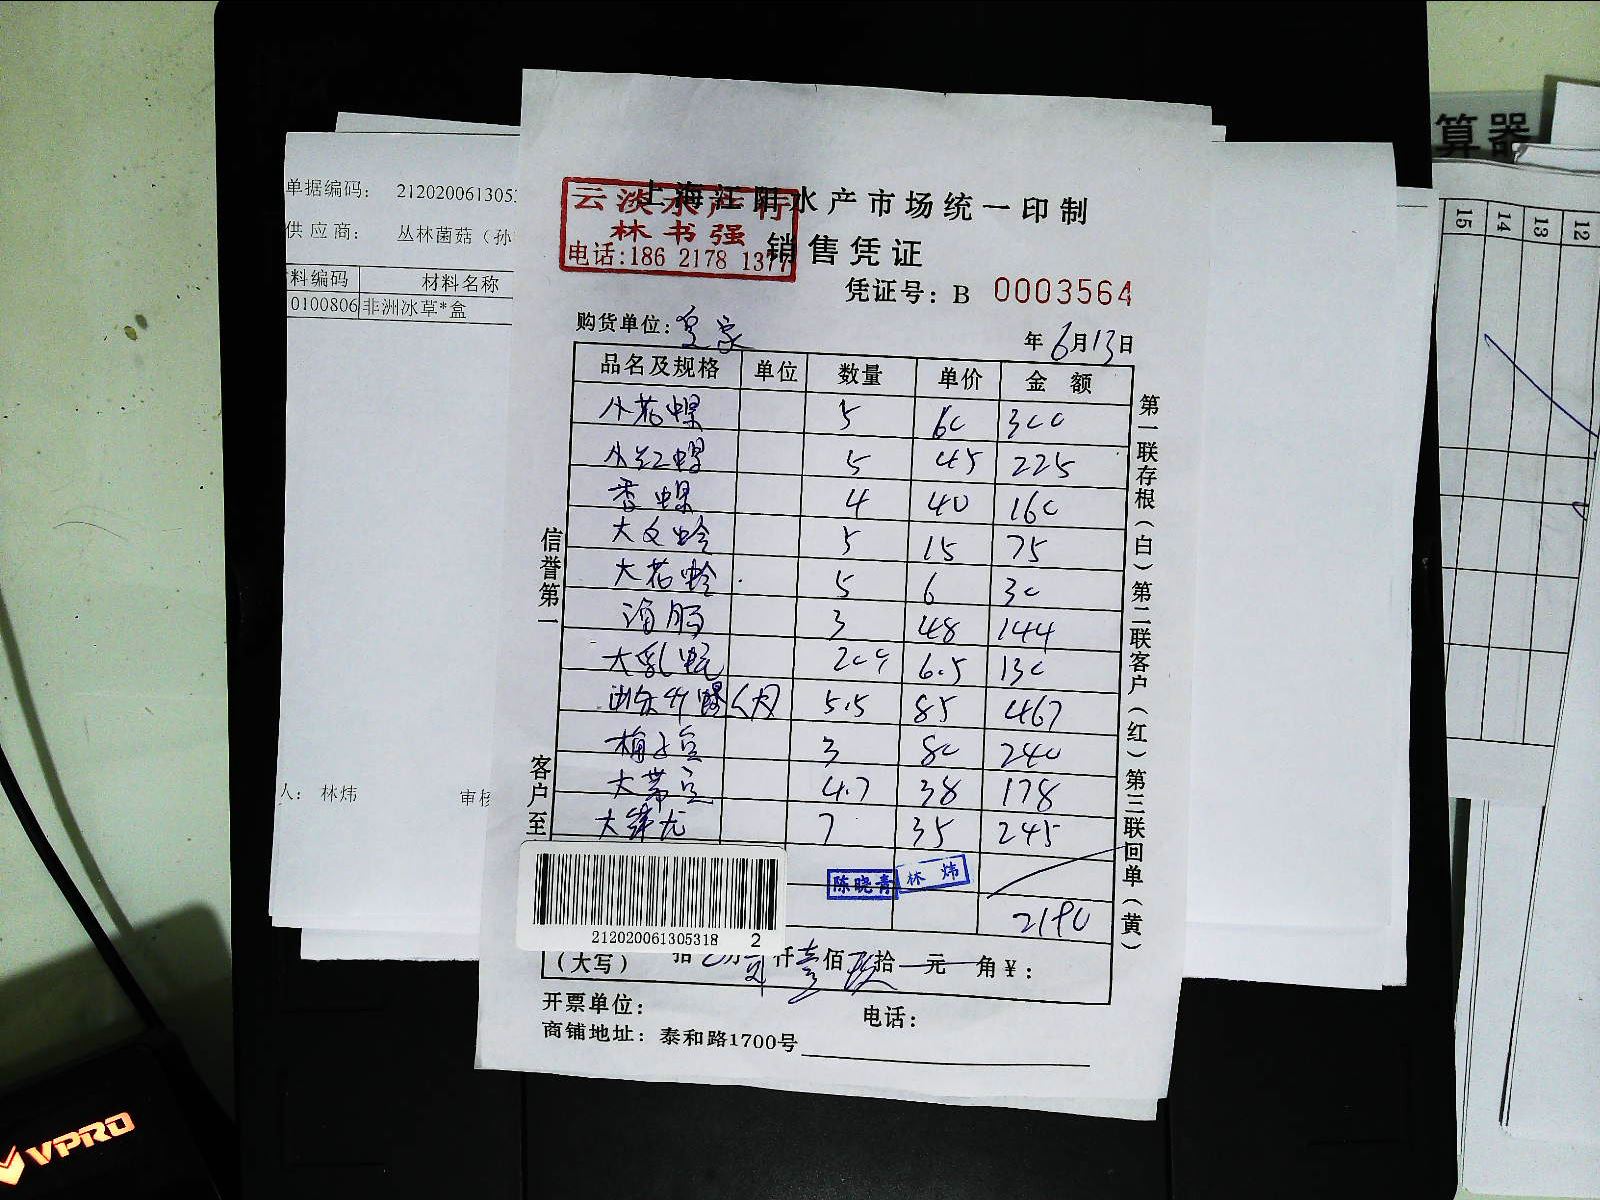 算器
15 14 13 12
单据编码： 2120200613053
供 应 商： 丛林菌菇（孙
料编码 材料名称
0100806 非洲冰草*盒
人： 林炜 审核
上海江阳水产市场统一印制
云淡水产行
林书强
电话:186 2178 1377
销售凭证
凭证号：B 0003564
购货单位：皇家 年6月13日
品名及规格 单位 数量 单价 金 额
小花螺 5 60 300
小红螺 5 45 225
香螺 4 40 160
大文蛤 5 15 75
大花蛤 5 6 30
海肠 3 48 144
大乳 6.5 130
5.5 85 467
3 80 240
大 4.7 38 178
大 龙 7 35 245
陈晓青 林炜
2190
212020061305318 2
（大写） 拾 万贰仟壹佰玖拾 元 角￥：
开票单位： 电话：
商铺地址：泰和路1700号
信誉第一
客户至
第一联存根（白）第二联客户（红）第三联回单（黄）
VPRO